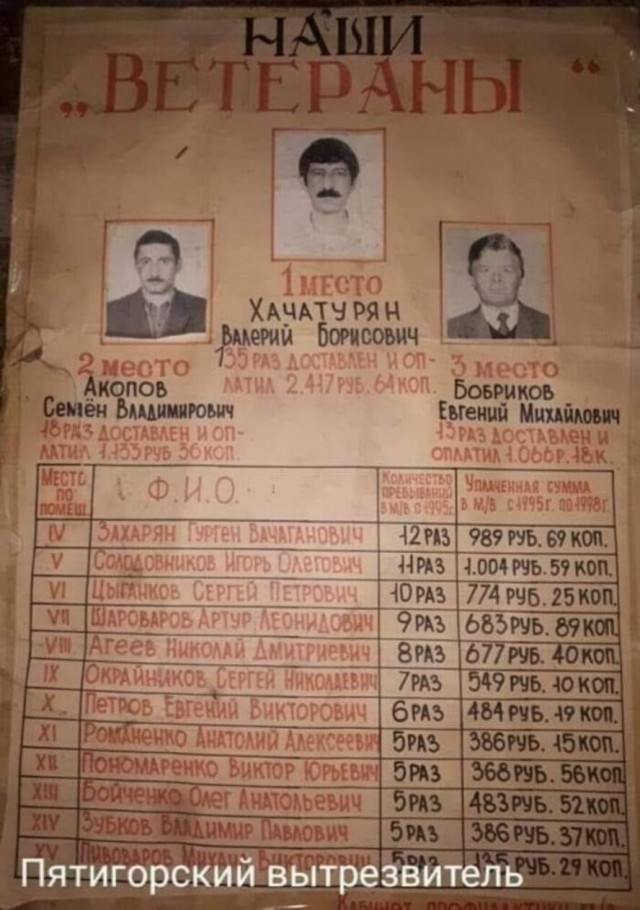 НАШИ
„ВЕТЕРАНЫ“
1 МЕСТО
ХАЧАТУРЯН
ВАЛЕРИЙ БОРИСОВИЧ
135 РАЗ ДОСТАВЛЕН И ОП-
ЛАТИЛ 2.417 РУБ. 64 КОП.
2 МЕСТО
АКОПОВ
СЕМЁН ВЛАДИМИРОВИЧ
18 РАЗ ДОСТАВЛЕН И ОП-
ЛАТИЛ 1.133 РУБ 36 КОП.
3 МЕСТО
БОБРИКОВ
ЕВГЕНИЙ МИХАЙЛОВИЧ
13 РАЗ ДОСТАВЛЕН И
ОПЛАТИЛ 1.066 Р. 18 К.
МЕСТО ПО ПОМЕЩ. Ф.И.О. КОЛИЧЕСТВО ПРЕБЫВАНИЙ В М/В С 1995г. УПЛАЧЕННАЯ СУММА В М/В С 1995г. ПО 1998г.
IV ЗАХАРЯН ГУРГЕН ВАЧАГАНОВИЧ 12 РАЗ 989 РУБ. 69 КОП.
V СОЛОДОВНИКОВ ИГОРЬ ОЛЕГОВИЧ 11 РАЗ 1.004 РУБ. 59 КОП.
VI ЦЫГАНКОВ СЕРГЕЙ ПЕТРОВИЧ 10 РАЗ 774 РУБ. 25 КОП.
VII ШАРОВАРОВ АРТУР ЛЕОНИДОВИЧ 9 РАЗ 683 РУБ. 89 КОП.
VIII АГЕЕВ НИКОЛАЙ ДМИТРИЕВИЧ 8 РАЗ 677 РУБ. 40 КОП.
IX ОКРАЙНИКОВ СЕРГЕЙ НИКОЛАЕВИЧ 7 РАЗ 549 РУБ. 10 КОП.
X ПЕТРОВ ЕВГЕНИЙ ВИКТОРОВИЧ 6 РАЗ 484 РУБ. 19 КОП.
XI РОМАНЕНКО АНАТОЛИЙ АЛЕКСЕЕВИЧ 5 РАЗ 386 РУБ. 15 КОП.
XII ПОНОМАРЕНКО ВИКТОР ЮРЬЕВИЧ 5 РАЗ 368 РУБ. 56 КОП.
XIII БОЙЧЕНКО ОЛЕГ АНАТОЛЬЕВИЧ 5 РАЗ 483 РУБ. 52 КОП.
XIV ЗУБКОВ ВЛАДИМИР ПАВЛОВИЧ 5 РАЗ 386 РУБ. 37 КОП.
XV ПИВОВАРОВ МИХАИЛ ВИКТОРОВИЧ 5 РАЗ РУБ. 29 КОП.
Пятигорский вытрезвитель
КАБИНЕТ ПРОФИЛАКТИКИ